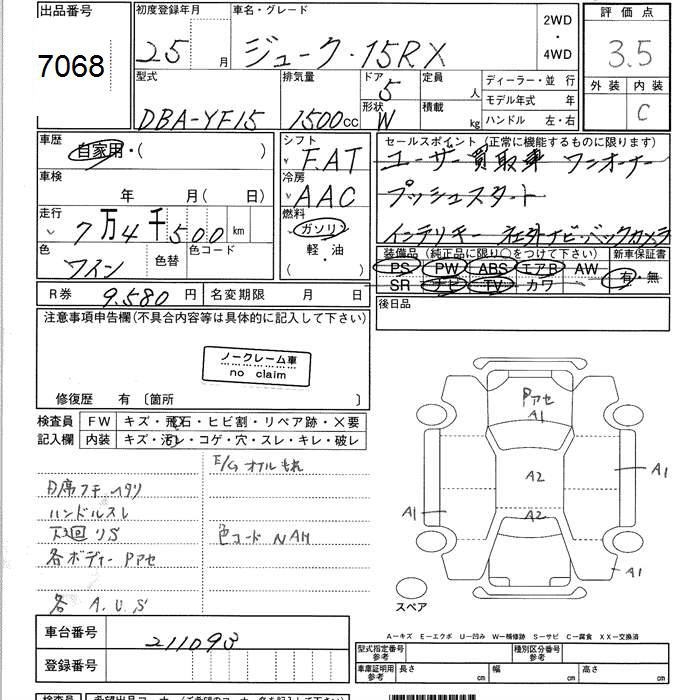 出品番号
7068
初度登録年月
25 月
車名・グレード
ジューク・15RX
2WD
・
4WD
評価点
3.5
外装 内装
C
型式
DBA-YF15
排気量
1500cc
ドア
5
形状
W
定員
人
積載
kg
ディーラー・並行
モデル年式 年
ハンドル 左・右
車歴
自家用・( )
車検
年 月( 日)
走行
7万4千500 km
色
ワイン
色替
色コード
シフト
FAT
冷房
AAC
燃料
ガソリン
軽・油
セールスポイント (正常に機能するものに限ります)
ユーザー買取車 ワンオーナー
プッシュスタート
インテリキー 社外ナビ・バックカメラ
装備品 (純正品に限り○をつけて下さい)
PS PW ABS エアB AW
SR ナビ TV カワ
新車保証書
有・無
R券 9,580円
名変期限 月 日
後日品
注意事項申告欄(不具合内容等は具体的に記入して下さい)
ノークレーム車
no claim
修復歴 有 〔箇所 〕
検査員
記入欄
FW キズ・飛石・ヒビ割・リペア跡・×要
内装 キズ・汚レ・コゲ・穴・スレ・キレ・破レ
E/Gオイルもれ
ハンドルスレ
下廻りS
色コード NAH
各ボディー Pアセ
各 A.U.S
Pアセ
A1
A2
A2
A1
A1
A1
スペア
車台番号
211093
登録番号
A－キズ E－エクボ U－凹み W－補修跡 S－サビ C－腐食 XX－交換済
型式指定番号
参考
種別区分番号
参考
車庫証明用
参考
長さ cm
幅 cm
高さ cm
検査員